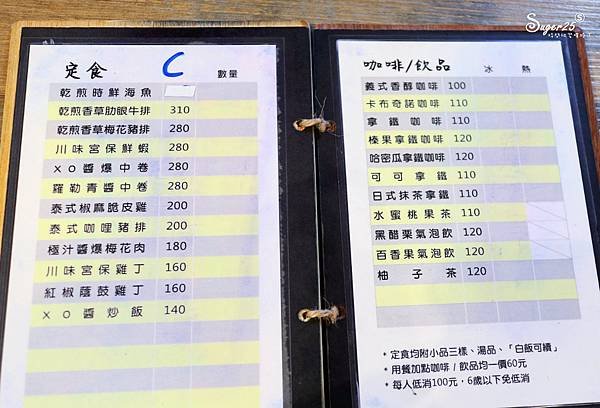 Suger25
定食 C 數量
乾煎時鮮海魚
乾煎香草肋眼牛排 310
乾煎香草梅花豬排 280
川味宮保鮮蝦 280
XO醬爆中卷 280
羅勒青醬中卷 280
泰式椒麻脆皮雞 200
泰式咖哩豬排 200
極汁醬爆梅花肉 180
川味宮保雞丁 160
紅椒蔭鼓雞丁 160
XO醬炒飯 140
咖啡/飲品 冰 熱
義式香醇咖啡 100
卡布奇諾咖啡 110
拿鐵咖啡 110
榛果拿鐵咖啡 120
哈密瓜拿鐵咖啡 120
可可拿鐵 110
日式抹茶拿鐵 110
水蜜桃果茶 110
黑醋栗氣泡飲 120
百香果氣泡飲 120
柚子茶 120
*定食均附小品三樣、湯品、「白飯可續」
*用餐加點咖啡/飲品均一價60元
*每人低消100元,6歲以下免低消